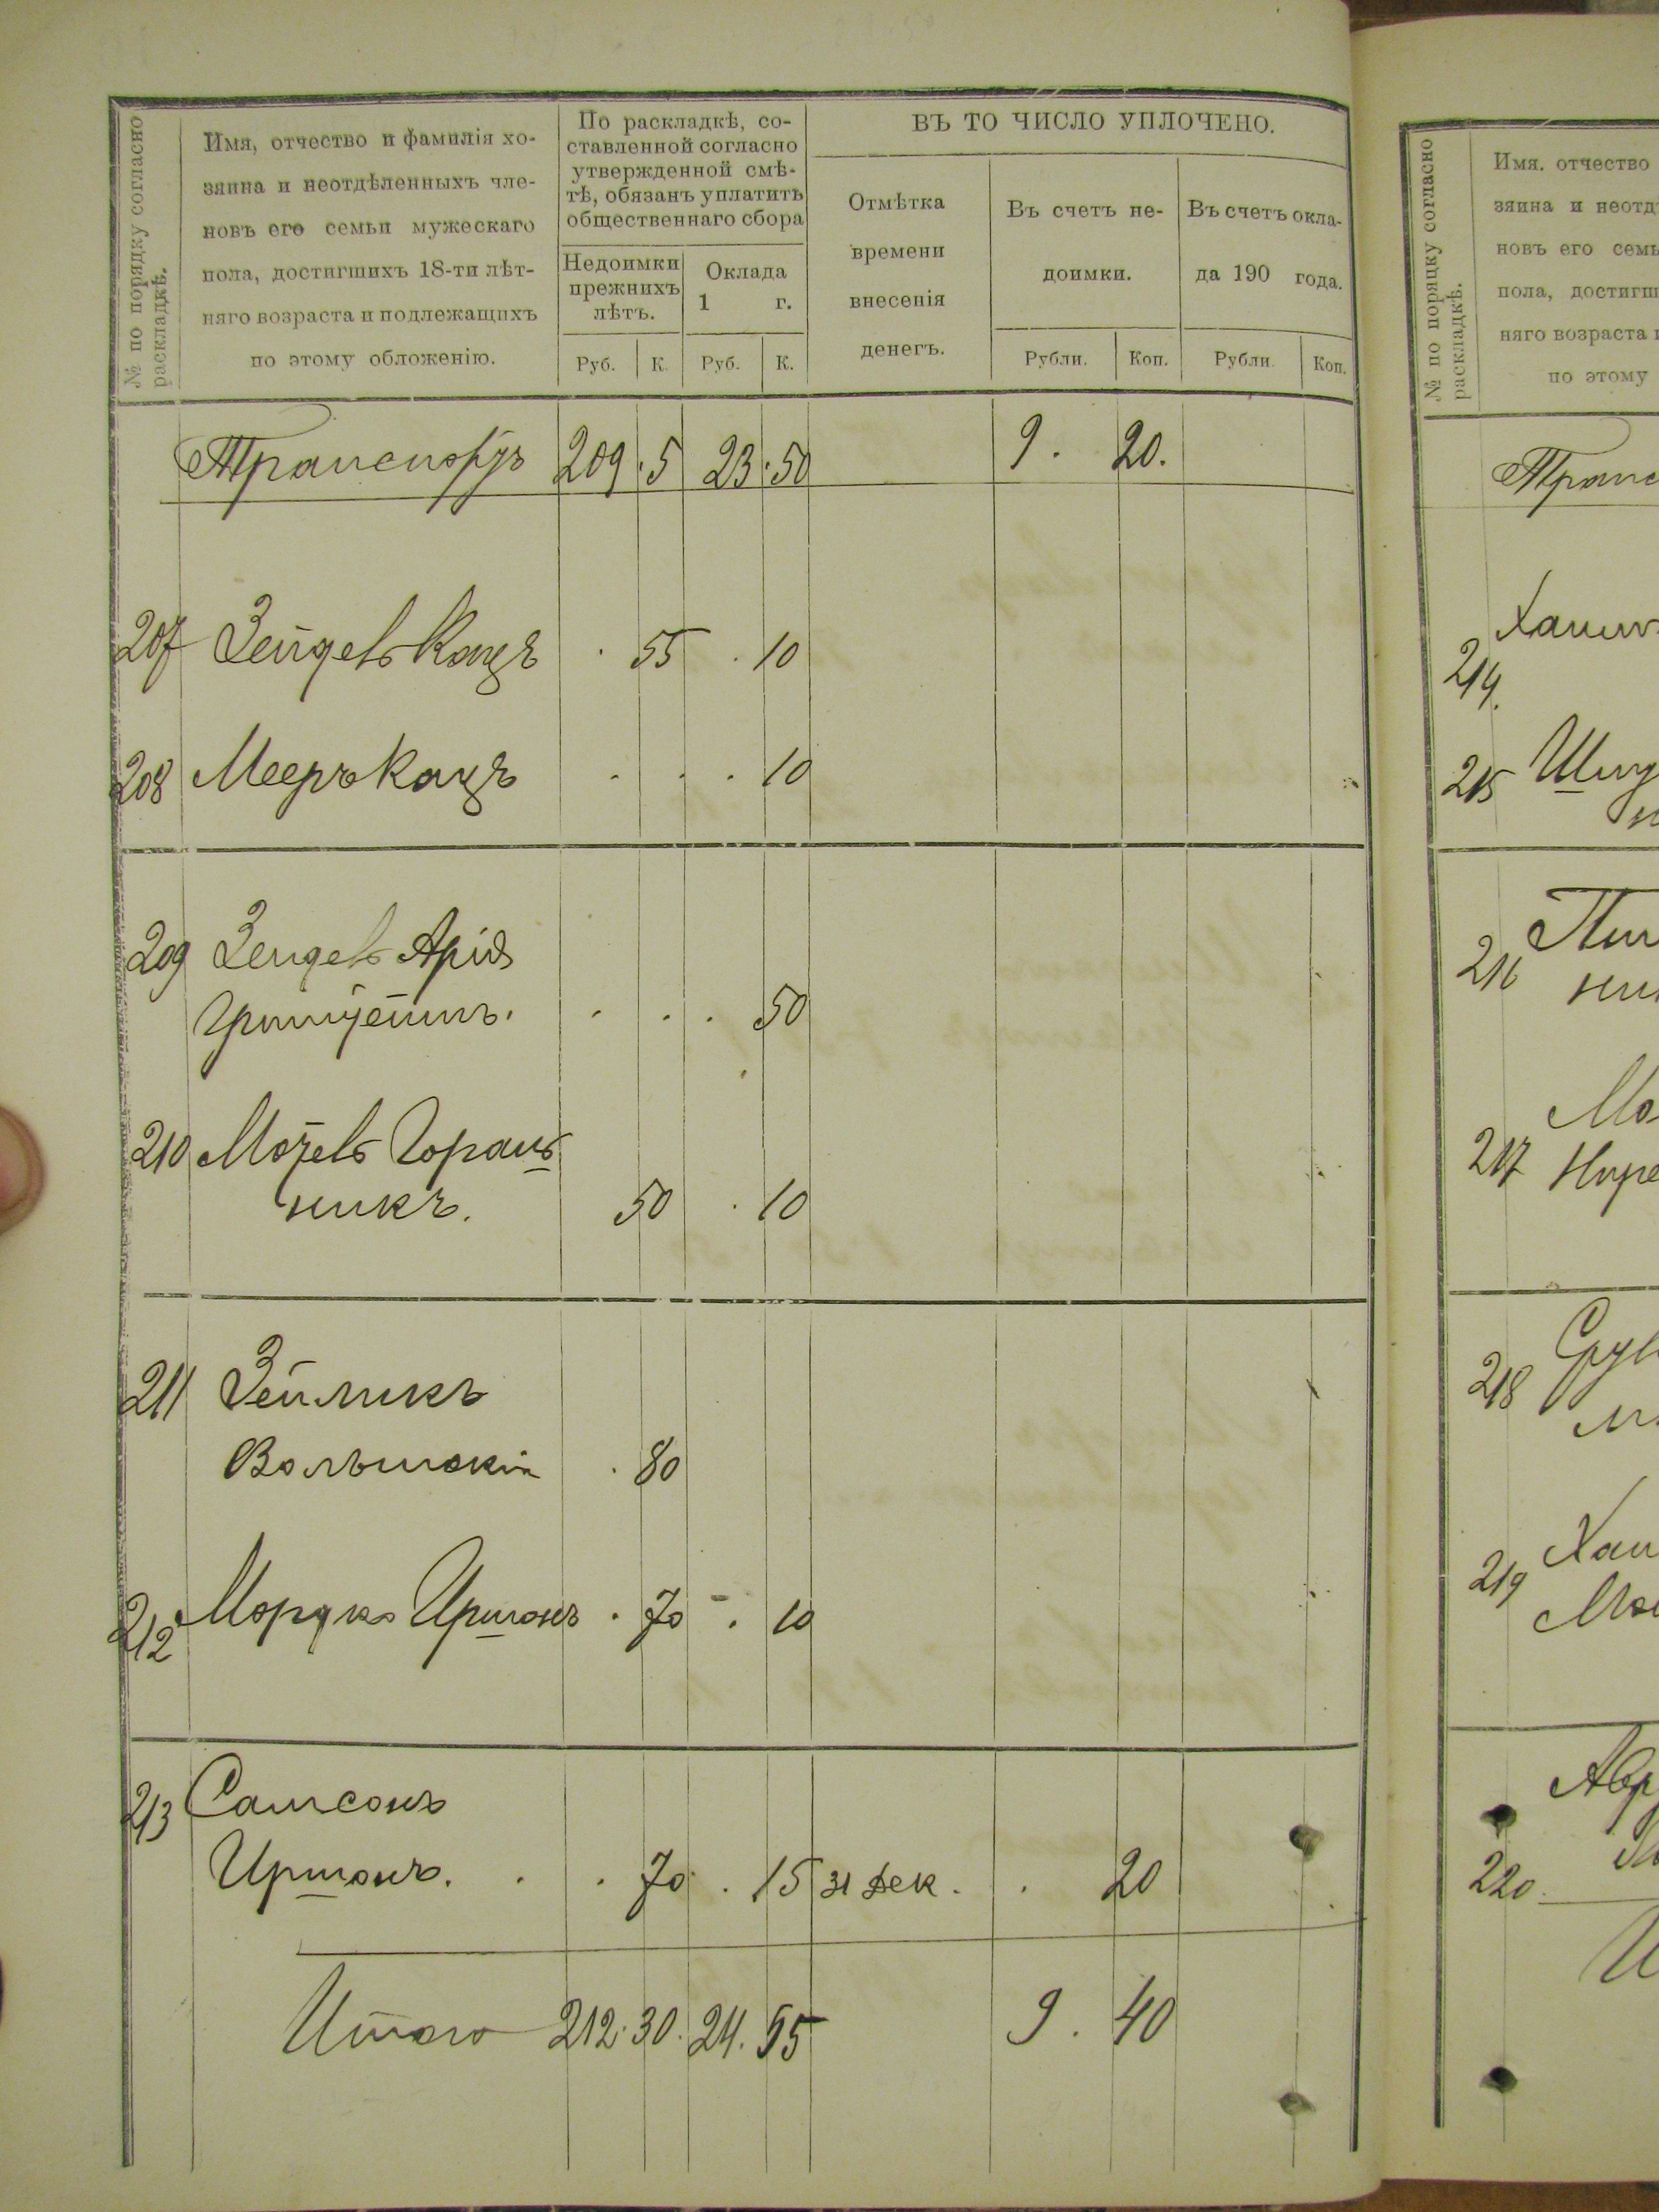 № по порядку согласно
раскладкѣ.
Имя, отчество и фамилія хо-
зяина и неотдѣленныхъ чле-
новъ его семьи мужескаго
пола, достигшихъ 18-ти лѣт-
няго возраста и подлежащихъ
по этому обложенію.
По раскладкѣ, со-
ставленной согласно
утвержденной смѣ-
тѣ, обязанъ уплатить
общественнаго сбора
Недоимки
прежнихъ
лѣтъ.
Оклада
1 г.
Руб. К. Руб. К.
ВЪ ТО ЧИСЛО УПЛОЧЕНО.
Отмѣтка
времени
внесенія
денегъ.
Въ счетъ не-
доимки.
Въ счетъ окла-
да 190 года.
Рубли. Коп. Рубли. Коп.
Транспортъ 209.5 23.50 9. 20.
207 Зейделъ Кацъ . 55 . 10
208 Мееръ Кацъ . . . 10
209 Зейделъ Арія
. . . 50
210 Мотелъ Горань
никъ. 50 . 10
211 Зейликъ
Вольшскій . 80
212 Мордко Иршонъ . 70 - . 10
213 Самсонъ
Иршонъ. . . 70 . 15 31 Дек. . 20
Итого 212.30. 24.55 9. 40
№ по порядку согласно
раскладкѣ.
Имя. отчество
зяина и неотд
новъ его семь
пола, достигш
няго возраста
по этому
Транс
214.
215
216
217
218
219
220